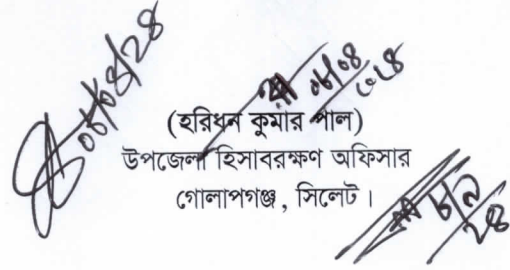 ০৮/০৪/২৪
(হরিধন কুমার পাল)
উপজেলা হিসাবরক্ষণ অফিসার
গোলাপগঞ্জ, সিলেট।